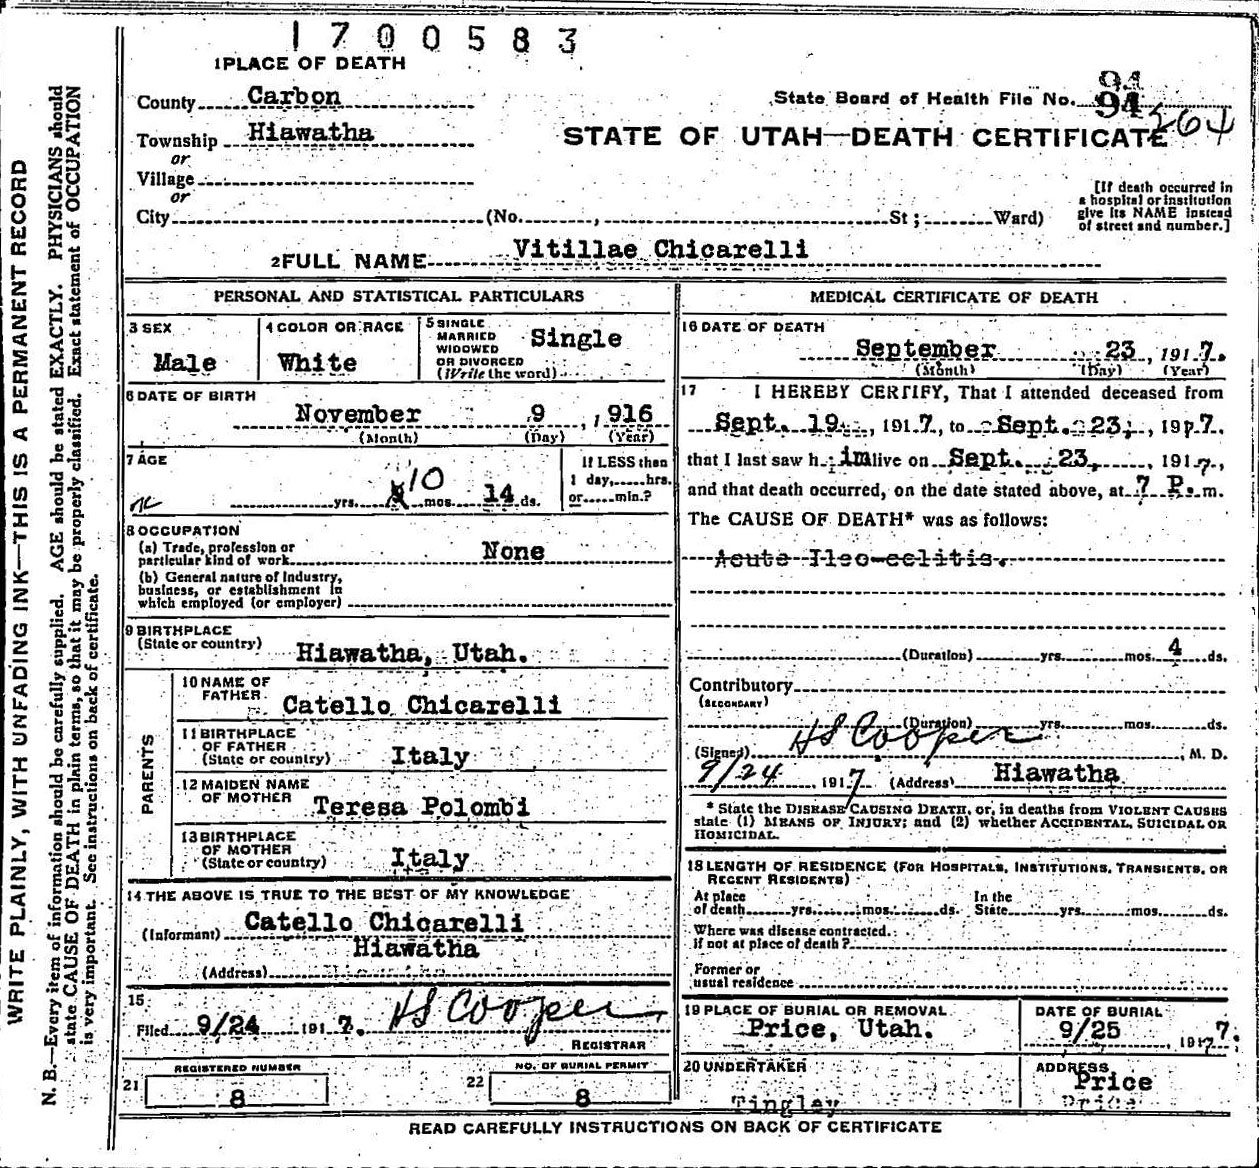 1700583
1 PLACE OF DEATH
County Carbon
State Board of Health File No. 94
94 264
Township Hiawatha
STATE OF UTAH—DEATH CERTIFICATE
or
Village
or
City (No. , St ; Ward)
[If death occurred in
a hospital or institution
give its NAME instead
of street and number.]
2 FULL NAME Vitillae Chicarelli
PERSONAL AND STATISTICAL PARTICULARS
3 SEX
Male
4 COLOR OR RACE
White
5 SINGLE
MARRIED
WIDOWED
OR DIVORCED
(Write the word)
Single
6 DATE OF BIRTH
November 9 , 1916
(Month) (Day) (Year)
7 AGE
yrs. 10 mos. 14 ds.
If LESS than
1 day, hrs.
or min.?
8 OCCUPATION
(a) Trade, profession or
particular kind of work None
(b) General nature of Industry,
business, or establishment in
which employed (or employer)
9 BIRTHPLACE
(State or country) Hiawatha, Utah.
PARENTS
10 NAME OF
FATHER Catello Chicarelli
11 BIRTHPLACE
OF FATHER
(State or country) Italy
12 MAIDEN NAME
OF MOTHER Teresa Polombi
13 BIRTHPLACE
OF MOTHER
(State or country) Italy
14 THE ABOVE IS TRUE TO THE BEST OF MY KNOWLEDGE
(Informant) Catello Chicarelli
Hiawatha
(Address)
15
Filed 9/24 1917. HS Cooper
REGISTRAR
21 REGISTERED NUMBER
8
22 NO. OF BURIAL PERMIT
8
MEDICAL CERTIFICATE OF DEATH
16 DATE OF DEATH
September 23 , 1917.
(Month) (Day) (Year)
17 I HEREBY CERTIFY, That I attended deceased from
Sept. 19 , 1917, to Sept. 23, , 1917.
that I last saw h im alive on Sept. 23, , 1917,
and that death occurred, on the date stated above, at 7 P. m.
The CAUSE OF DEATH* was as follows:
Acute Ileo-colitis.
(Duration) yrs. mos. 4 ds.
Contributory
(SECONDARY)
(Duration) yrs. mos. ds.
(Signed) HS Cooper , M. D.
9/24 , 1917 (Address) Hiawatha
* State the DISEASE CAUSING DEATH, or, in deaths from VIOLENT CAUSES
state (1) MEANS OF INJURY; and (2) whether ACCIDENTAL, SUICIDAL OR
HOMICIDAL.
18 LENGTH OF RESIDENCE (FOR HOSPITALS, INSTITUTIONS, TRANSIENTS, OR
RECENT RESIDENTS)
At place In the
of death yrs. mos. ds. State yrs. mos. ds.
Where was disease contracted.
if not at place of death?
Former or
usual residence
19 PLACE OF BURIAL OR REMOVAL
Price, Utah.
DATE OF BURIAL
9/25 , 1917.
20 UNDERTAKER
Tingley
ADDRESS
Price
Price
READ CAREFULLY INSTRUCTIONS ON BACK OF CERTIFICATE
WRITE PLAINLY, WITH UNFADING INK—THIS IS A PERMANENT RECORD
N. B.—Every item of information should be carefully supplied. AGE should be stated EXACTLY. PHYSICIANS should
state CAUSE OF DEATH in plain terms, so that it may be properly classified. Exact statement of OCCUPATION
is very important. See instructions on back of certificate.